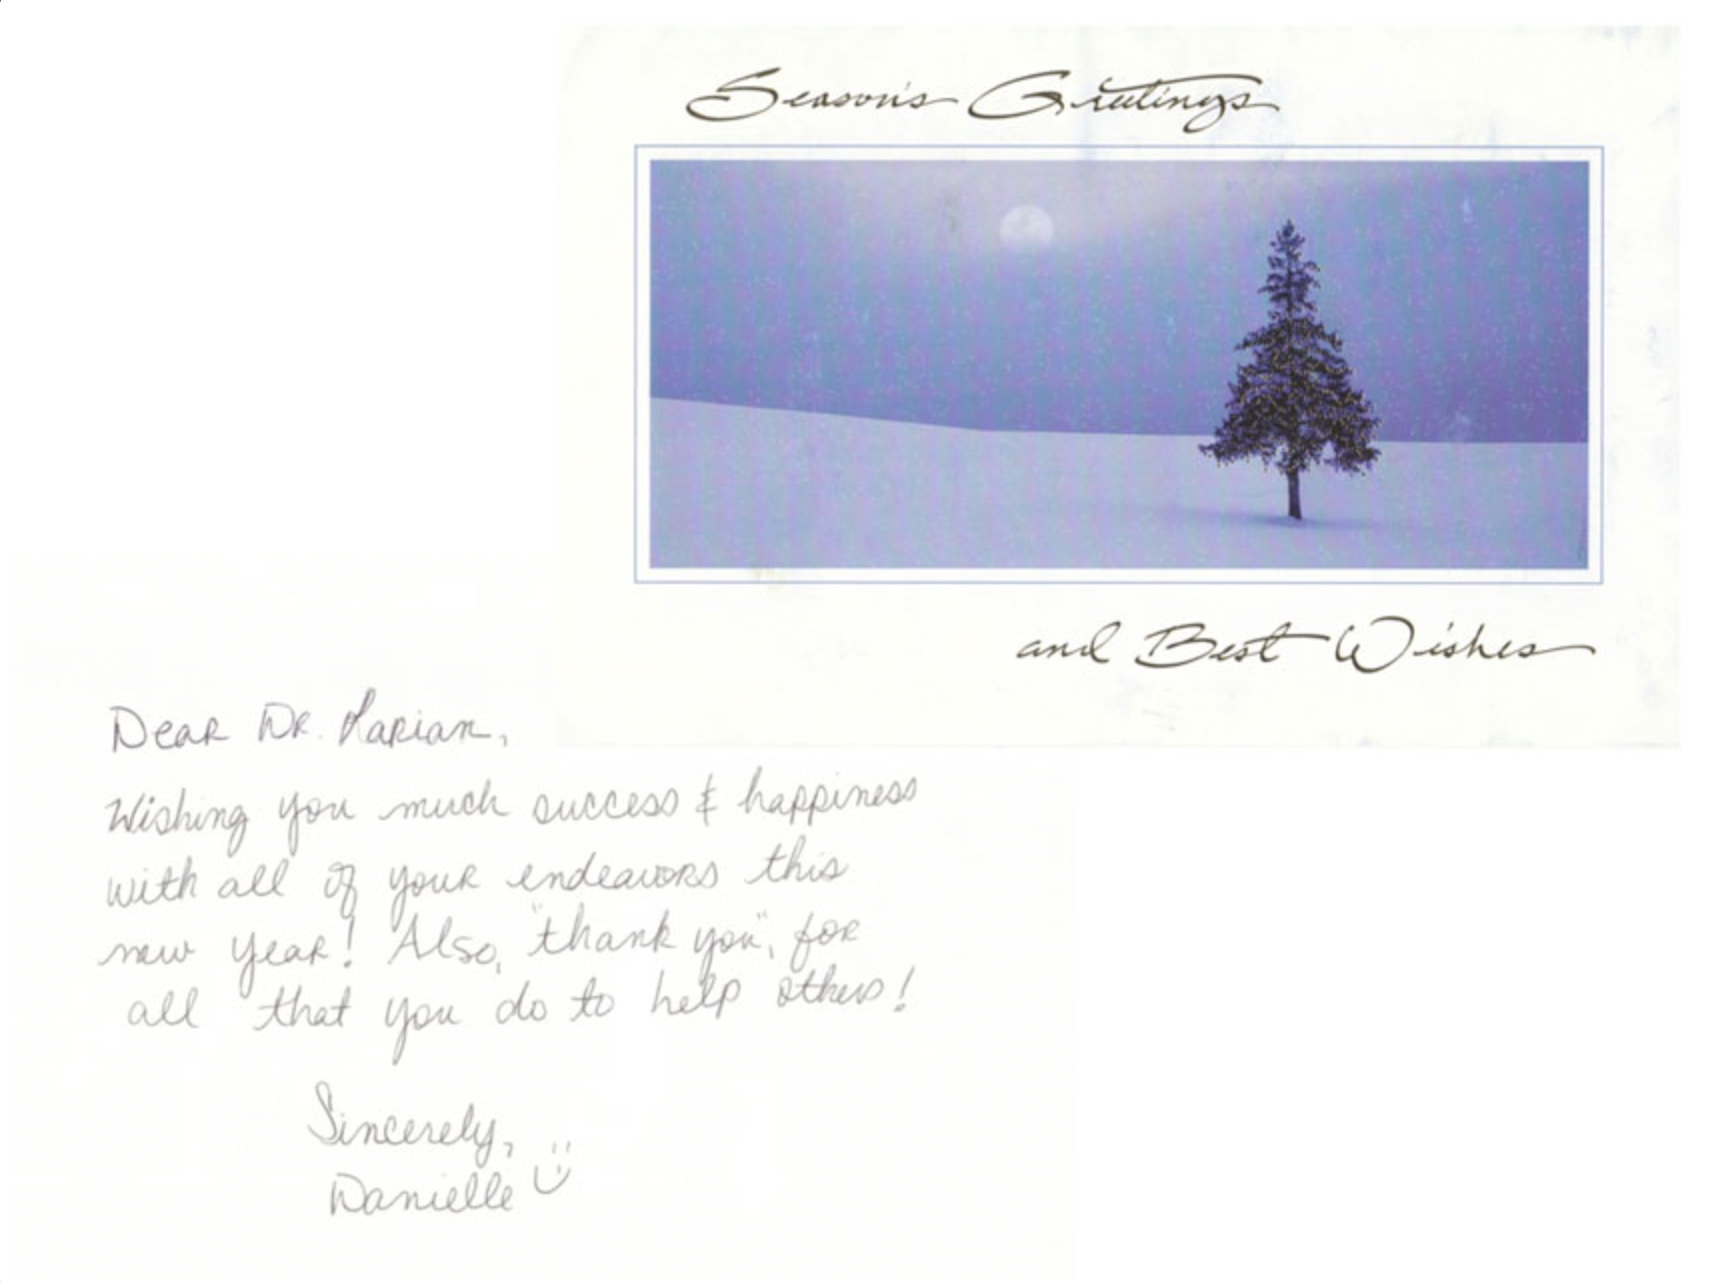 Season's Greetings
and Best Wishes
Dear Dr.
Wishing you much success & happiness
with all of your endeavors this
new year! Also, "thank you", for
all that you do to help others!
Sincerely,
Danielle